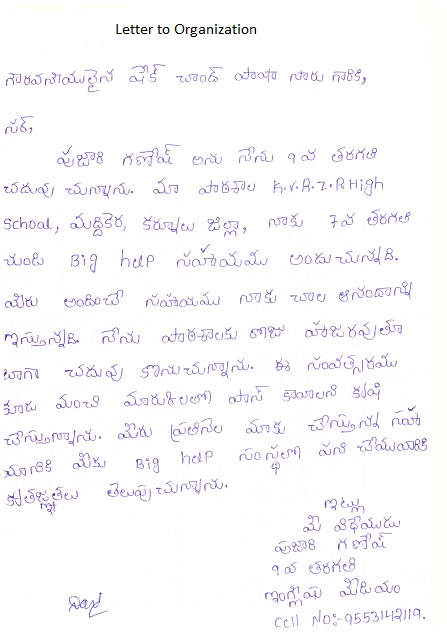 Letter to Organization
గౌరవనీయులైన షేక్ చాంద్ పాషా సారు గారికి,
సర్,
పుజారి గణేష్ అను నేను 9 వ తరగతి
చదువు చున్నాను. మా పాఠశాల K.V.R.Z.P High
School, మద్దికెర, కర్నూలు జిల్లా, నాకు 7వ తరగతి
నుండి Big help సహాయము అందుచున్నది.
మీరు అందించే సహాయము నాకు చాల ఆనందాన్ని
ఇస్తున్నది. నేను పాఠశాలకు రోజు హాజరవుతూ
బాగా చదువు కొనుచున్నాను. ఈ సంవత్సరము
కూడ మంచి మారుకులతో పాస్ కావాలని కృషి
చేస్తున్నాను. మీరు ప్రతినెల మాకు చేస్తున్న సహా
యానికి మీకు Big help సంస్థలో పని చేయువారికి
కృతజ్ఞతలు తెలుపుచున్నాను.
ఇట్లు
మీ విధేయుడు
పుజారి గణేష్
9 వ తరగతి
ఇంగ్లీషు మీడియం
Cell No:-9553142119.